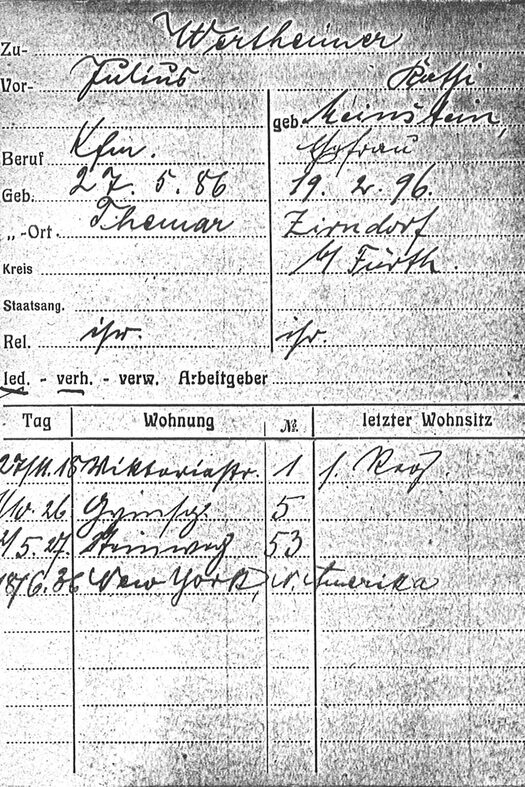 Zu- Wertheimer
Vor- Julius Kathi
geb. Meinstein,
Beruf Kfm. Ehefrau
Geb. 27. 5. 86 19. 2. 96.
„ -Ort. Themar Zirndorf
Kreis b/ Fürth.
Staatsang.
Rel. isr. isr.
led. - verh. - verw. Arbeitgeber
Tag Wohnung № letzter Wohnsitz
27/11.18 Viktoriastr. 1 s.
/10.26. 5
/5.27. Steinweg 53
18/6.36 New York, N. Amerika